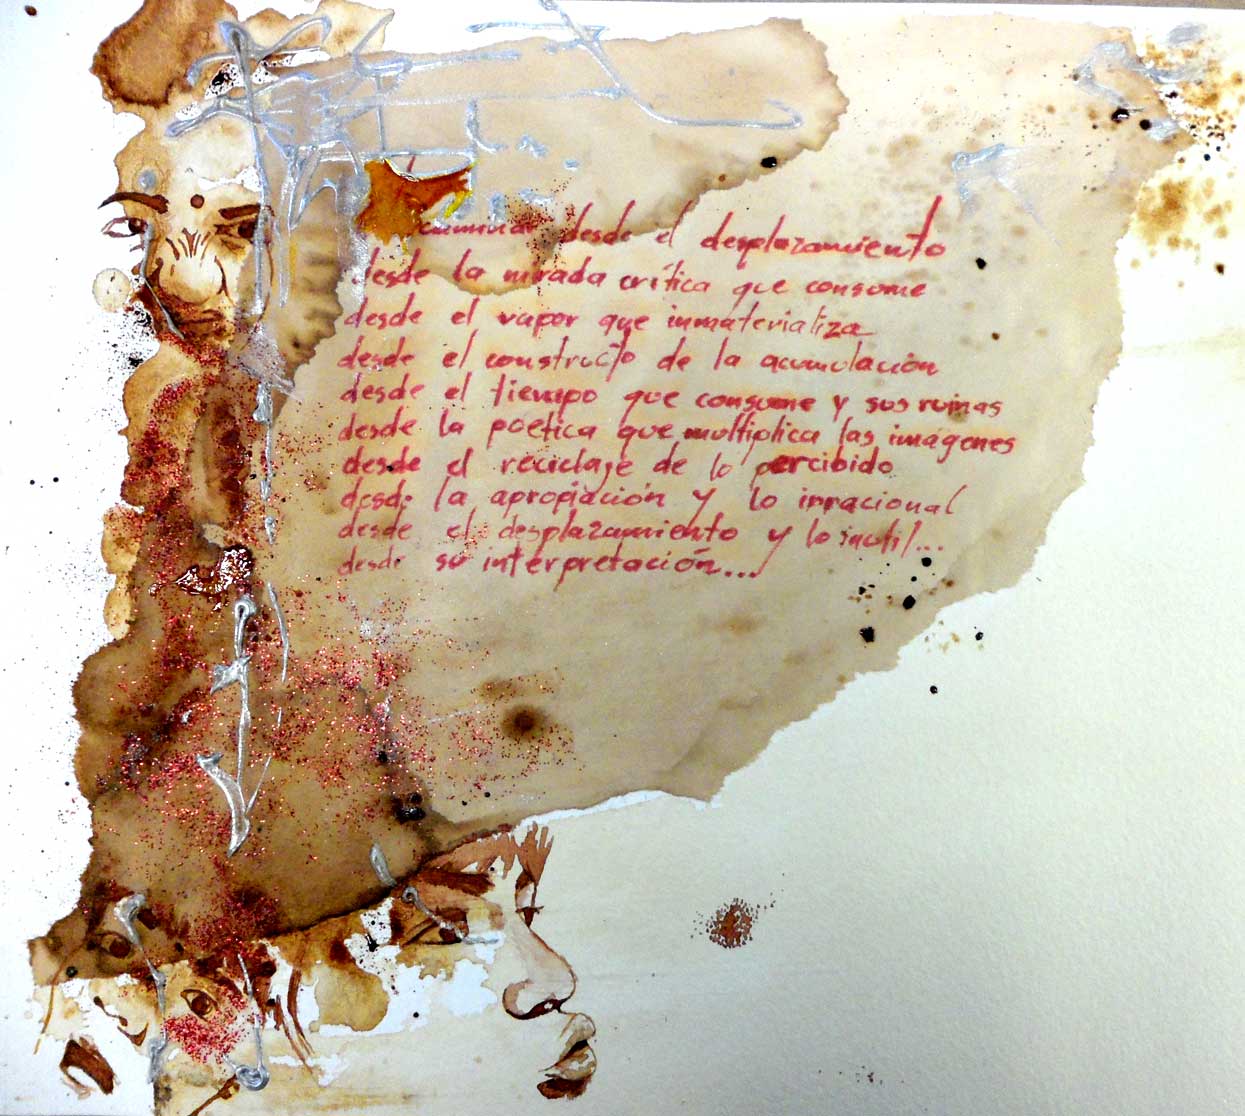 caminar desde el desplazamiento
desde la mirada crítica que consume
desde el vapor que inmaterializa
desde el constructo de la acumulación
desde el tiempo que consume y sus ruinas
desde la poética que multiplica las imágenes
desde el reciclaje de lo percibido
desde la apropiación y lo irracional
desde el desplazamiento y lo inutil...
desde su interpretación...